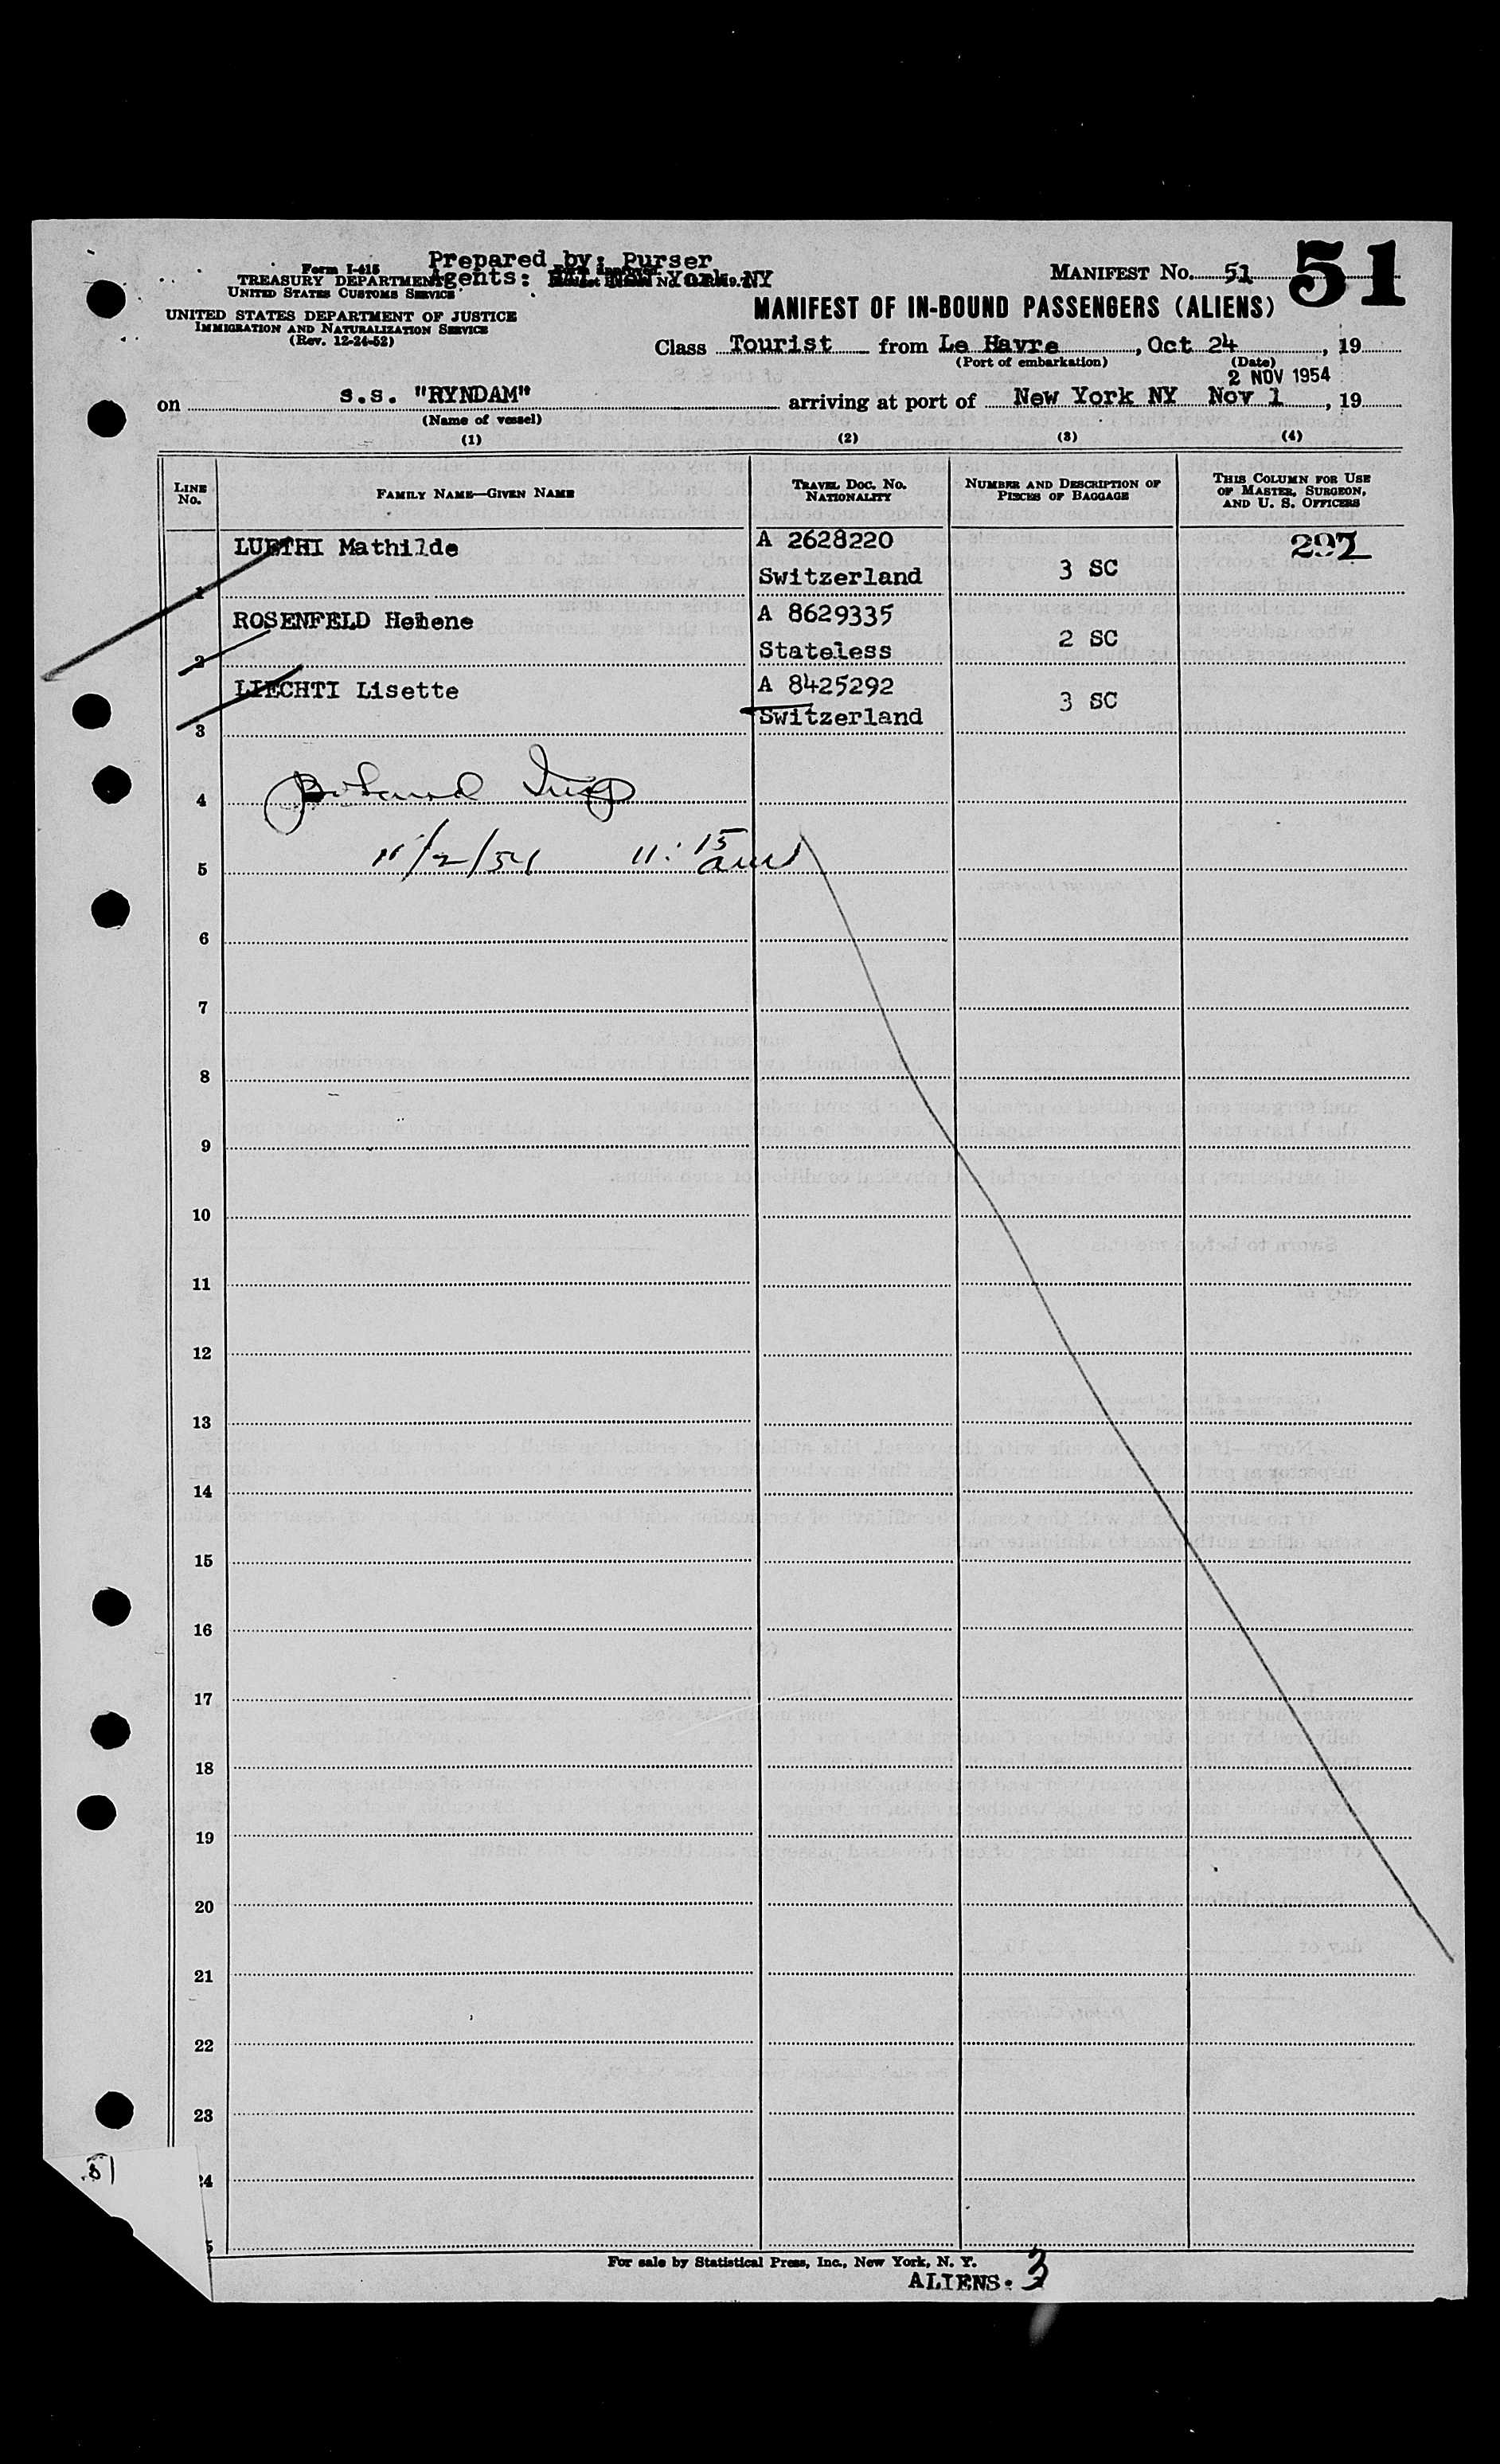 Prepared by: Purser
Form I-415
TREASURY DEPARTMENT Agents: HAL New York NY
UNITED STATES CUSTOMS SERVICE
UNITED STATES DEPARTMENT OF JUSTICE
IMMIGRATION AND NATURALIZATION SERVICE
(Rev. 12-24-52)
MANIFEST NO. 51 51
MANIFEST OF IN-BOUND PASSENGERS (ALIENS)
Class Tourist from Le Havre, Oct 24, 19
(Port of embarkation) (Date)
2 NOV 1954
on s.s. "RYNDAM" arriving at port of New York NY Nov 1, 19
(Name of vessel)
(1) (2) (3) (4)
LINE NO. FAMILY NAME—GIVEN NAME TRAVEL DOC. NO. NATIONALITY NUMBER AND DESCRIPTION OF PIECES OF BAGGAGE THIS COLUMN FOR USE OF MASTER, SURGEON, AND U. S. OFFICERS
LUETHI Mathilde A 2628220
1 Switzerland 3 SC
ROSENFELD Helene A 8629335
2 Stateless 2 SC
LIECHTI Lisette A 8425292
3 Switzerland 3 SC
4
11/2/54 11:15 am
5
6
7
8
9
10
11
12
13
14
15
16
17
18
19
20
21
22
23
51 24
5
For sale by Statistical Press, Inc., New York, N. Y.
ALIENS: 3